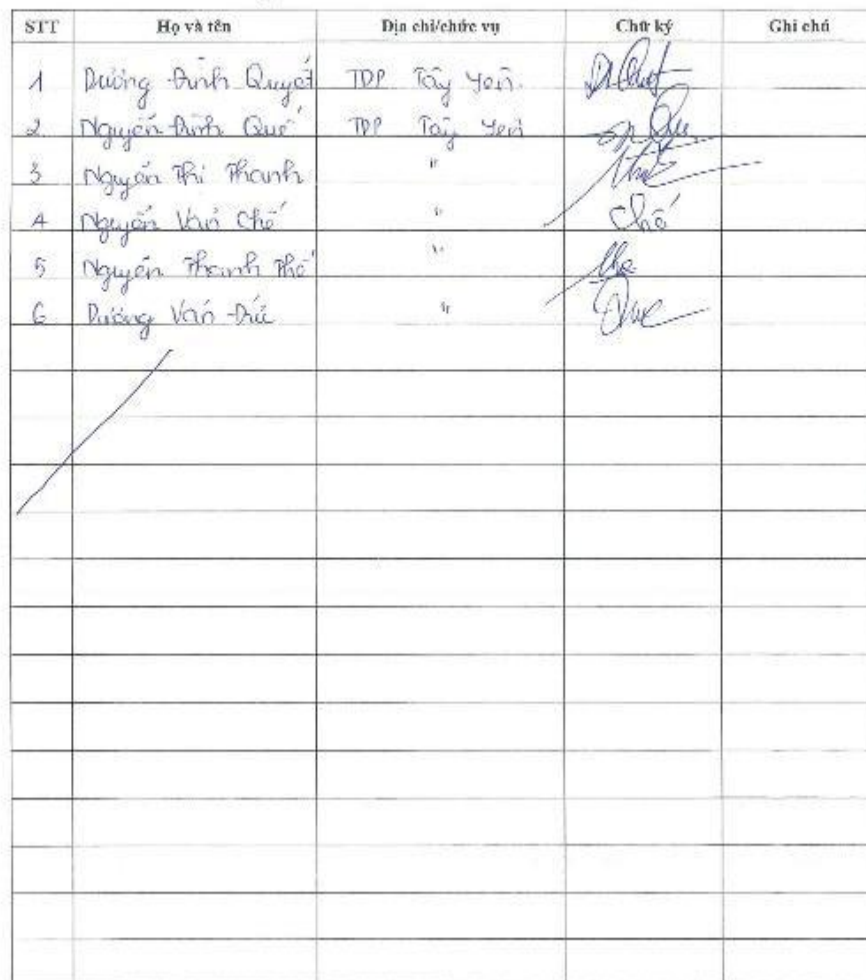 STT Họ và tên Địa chỉ/chức vụ Chữ ký Ghi chú
1 Dương Đình Quyết TDP Tây Yên.
2. Nguyễn Đình Quế TDP Tây Yên
3 Nguyễn Thị Thanh "
4 Nguyễn Văn Chế " Chế
5 Nguyễn Thanh Thế "
6 Dương Văn Đức "